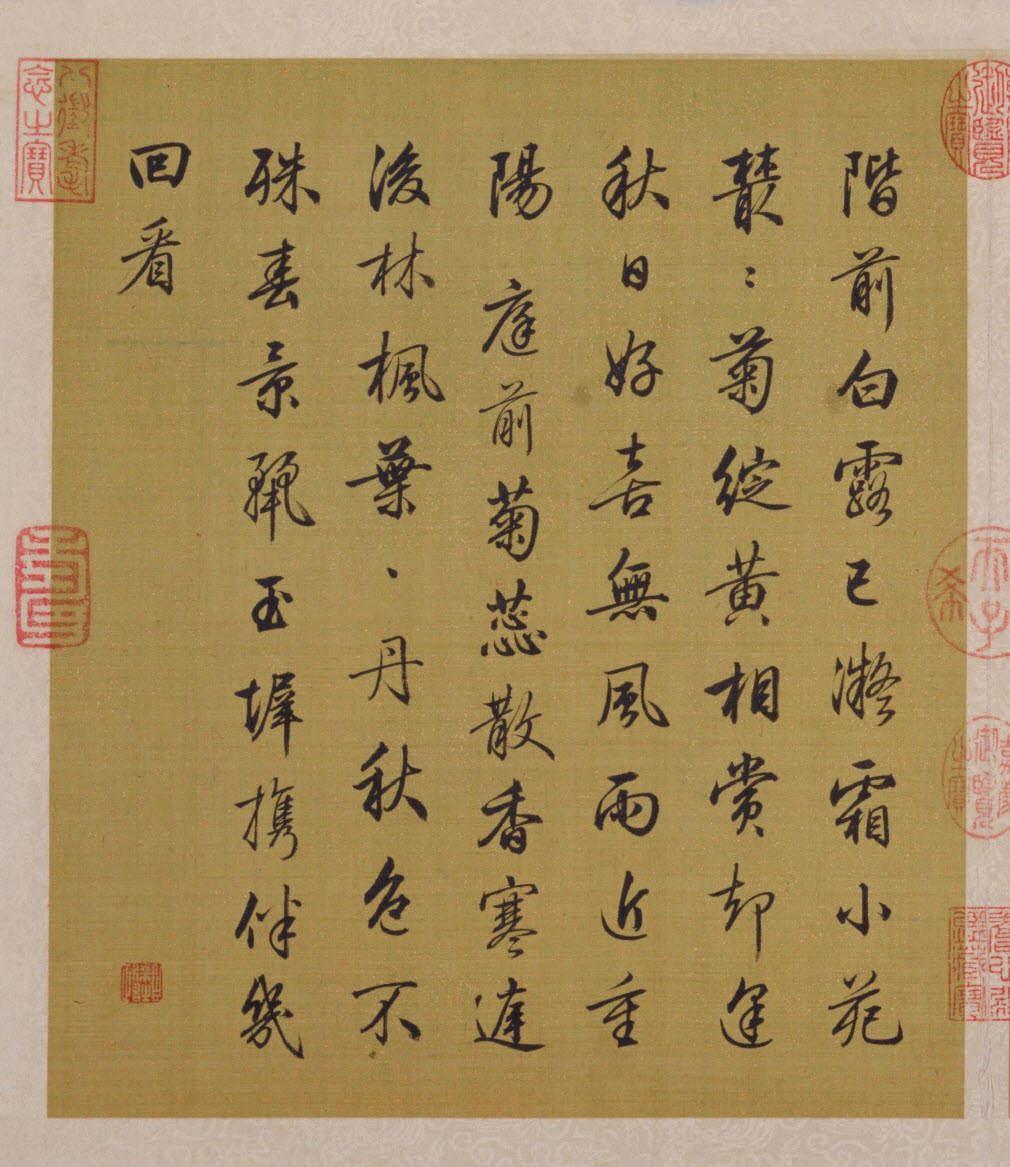 階前白露已凝霜小苑
叢〻菊綻黃相賞却逢
秋日好喜無風雨近重
陽 庭前菊蕊散香寒
後林楓葉、丹秋色不
殊春景麗玉墀攜伴幾
回看
八徵耄
念之寶
壽